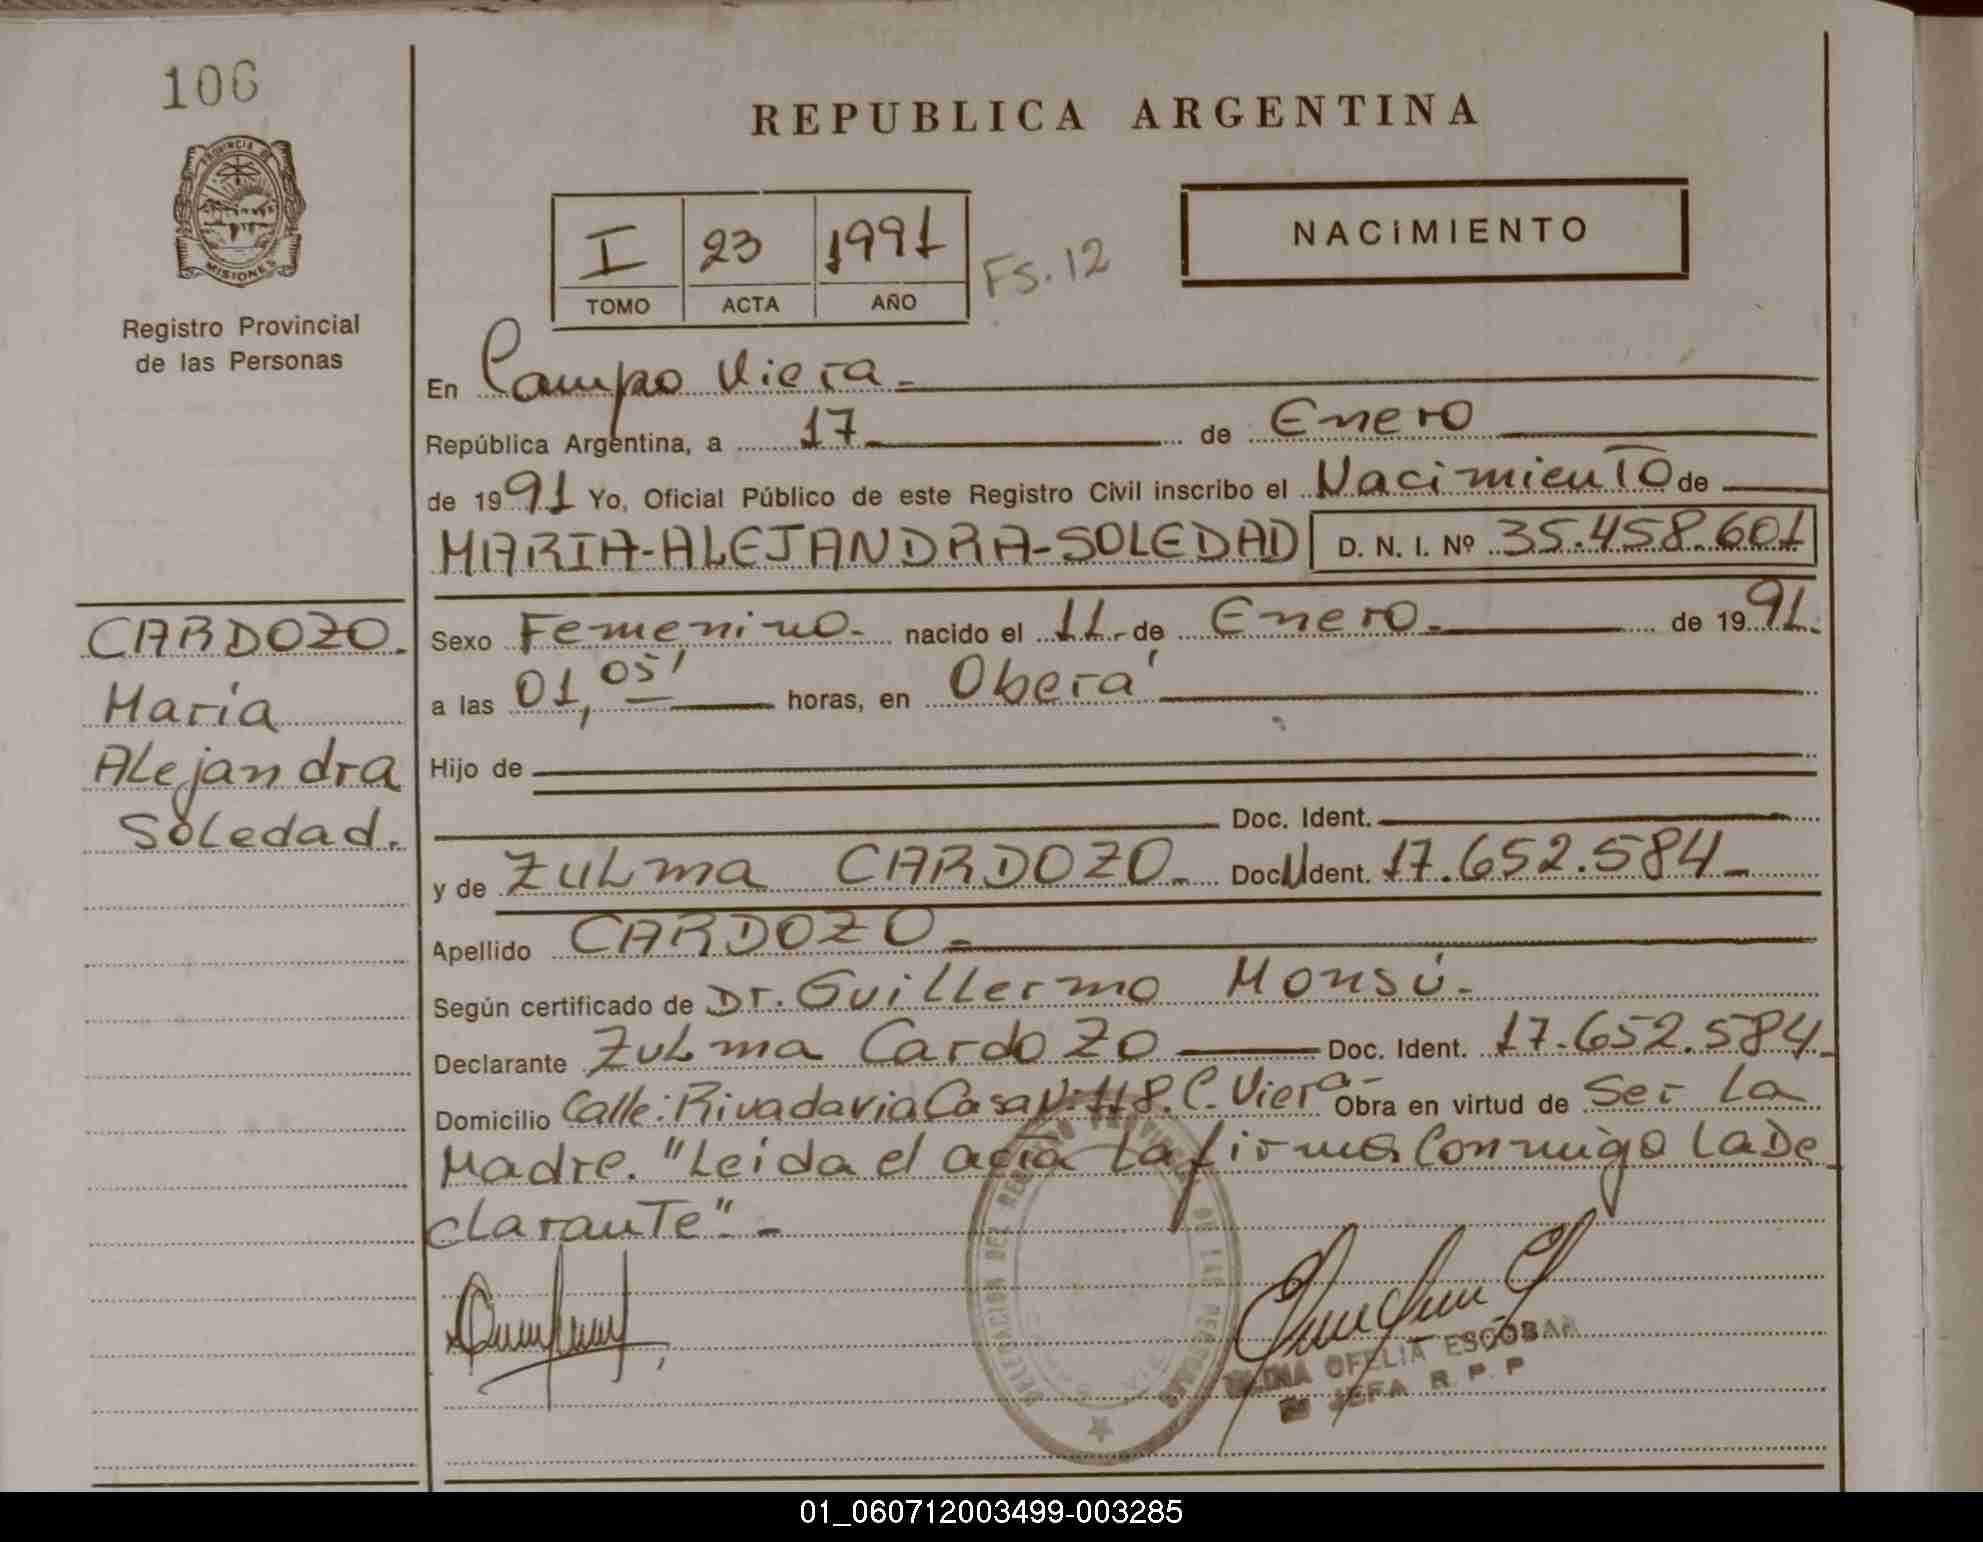 106
PROVINCIA DE
MISIONES
Registro Provincial
de las Personas
REPUBLICA ARGENTINA
I 23 1991
TOMO ACTA AÑO
FS. 12
NACIMIENTO
En Campo Viera
República Argentina, a 17 de Enero
de 1991 Yo, Oficial Público de este Registro Civil inscribo el Nacimiento de
MARIA-ALEJANDRA-SOLEDAD D. N. I. Nº 35.458.601
CARDOZO.
María
Alejandra
Soledad.
Sexo Femenino.- nacido el 11.- de Enero.- de 1991.
a las 01,05' horas, en Oberá
Hijo de
Doc. Ident.
y de ZULma CARDOZO.- Doc. Ident. 17.652.584-
Apellido CARDOZO-
Según certificado de Dr. Guillermo Monsú.-
Declarante Zulma Cardozo Doc. Ident. 17.652.584.
Domicilio Calle: Rivadavia Casa Nº 118. C. Viera- Obra en virtud de Ser La
Madre. "Leida el acta La firma Conmigo La De
clarante".-
DELEGACION DEL REGISTRO PROVINCIAL DE LAS PERSONAS
OFELIA ESCOBAR
JEFA R. P. P
01_060712003499-003285